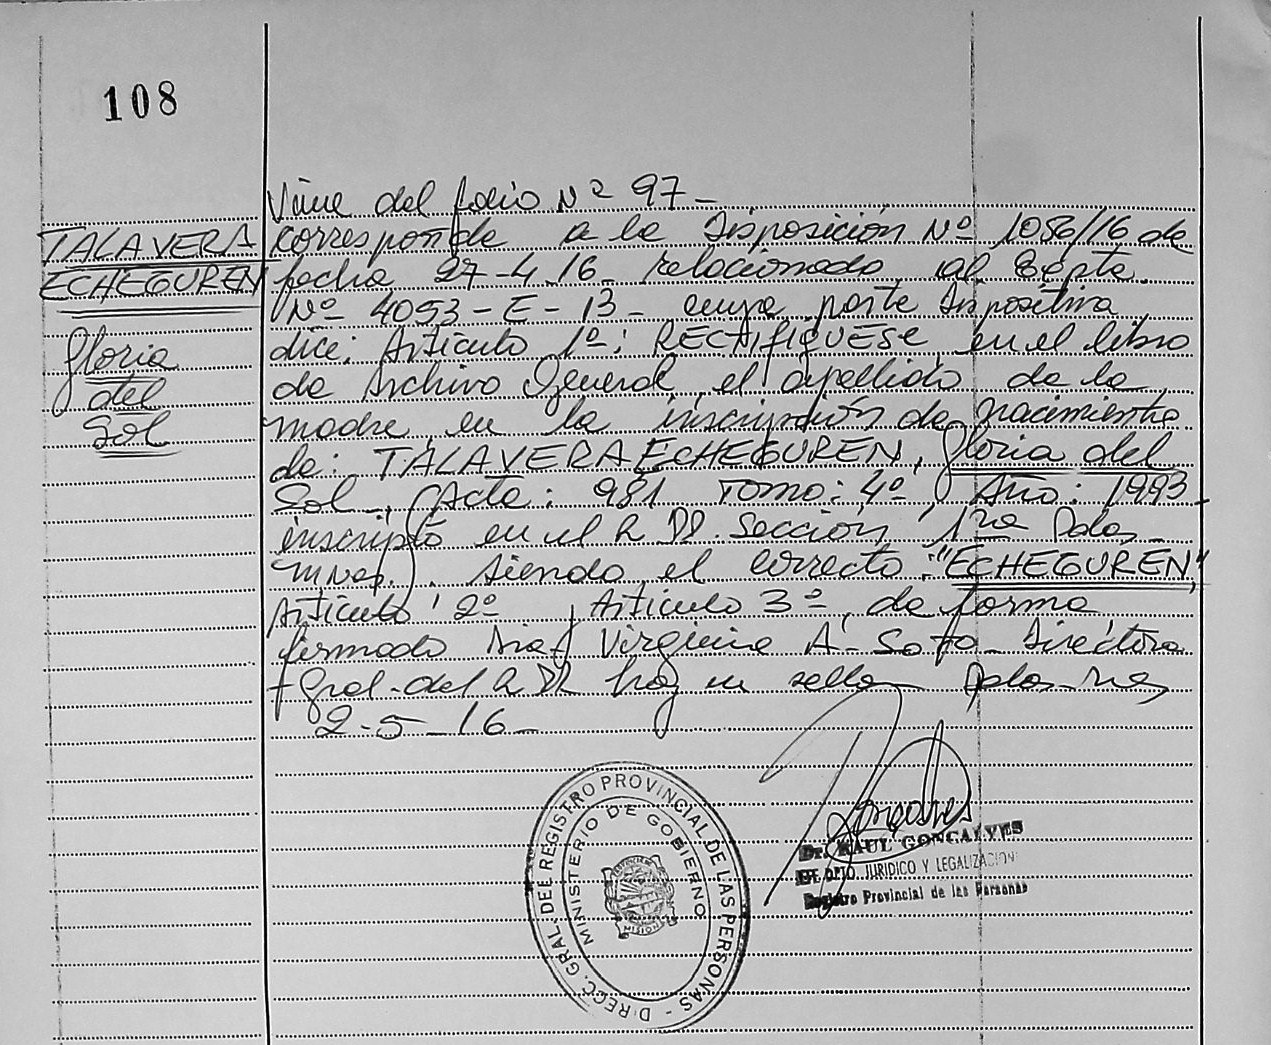 108
Viene del folio Nº 97-
TALAVERA
ECHEGUREN
Gloria
del
Sol
corresponde a la Disposición Nº 1056/16 de
fecha 27-4-16- relacionado al Expte.
Nº 4053-E-13- cuya parte dispositiva
dice: Artículo 1º: RECTIFIQUESE en el libro
de Archivo General, el apellido de la
madre, en la inscripción de nacimiento
de: TALAVERA ECHEGUREN, Gloria del
Sol-, Acta: 981 Tomo: 4º, Año: 1993-
inscripto en el R.P.P. Sección 1ra Pdas-
Mnes. siendo el correcto: "ECHEGUREN,"
Artículo 2º y Artículo 3º de forma
firmado Dra. Virginia A. Soto- Directora
Gral. del R.P.P. hay un sello- Pdas-
2-5-16-
DIRECC. GRAL. DEL REGISTRO PROVINCIAL DE LAS PERSONAS -
MINISTERIO DE GOBIERNO
MISIONES
Dr. RAUL GONCALVES
DPTO. JURIDICO Y LEGALIZACION
Registro Provincial de las Personas